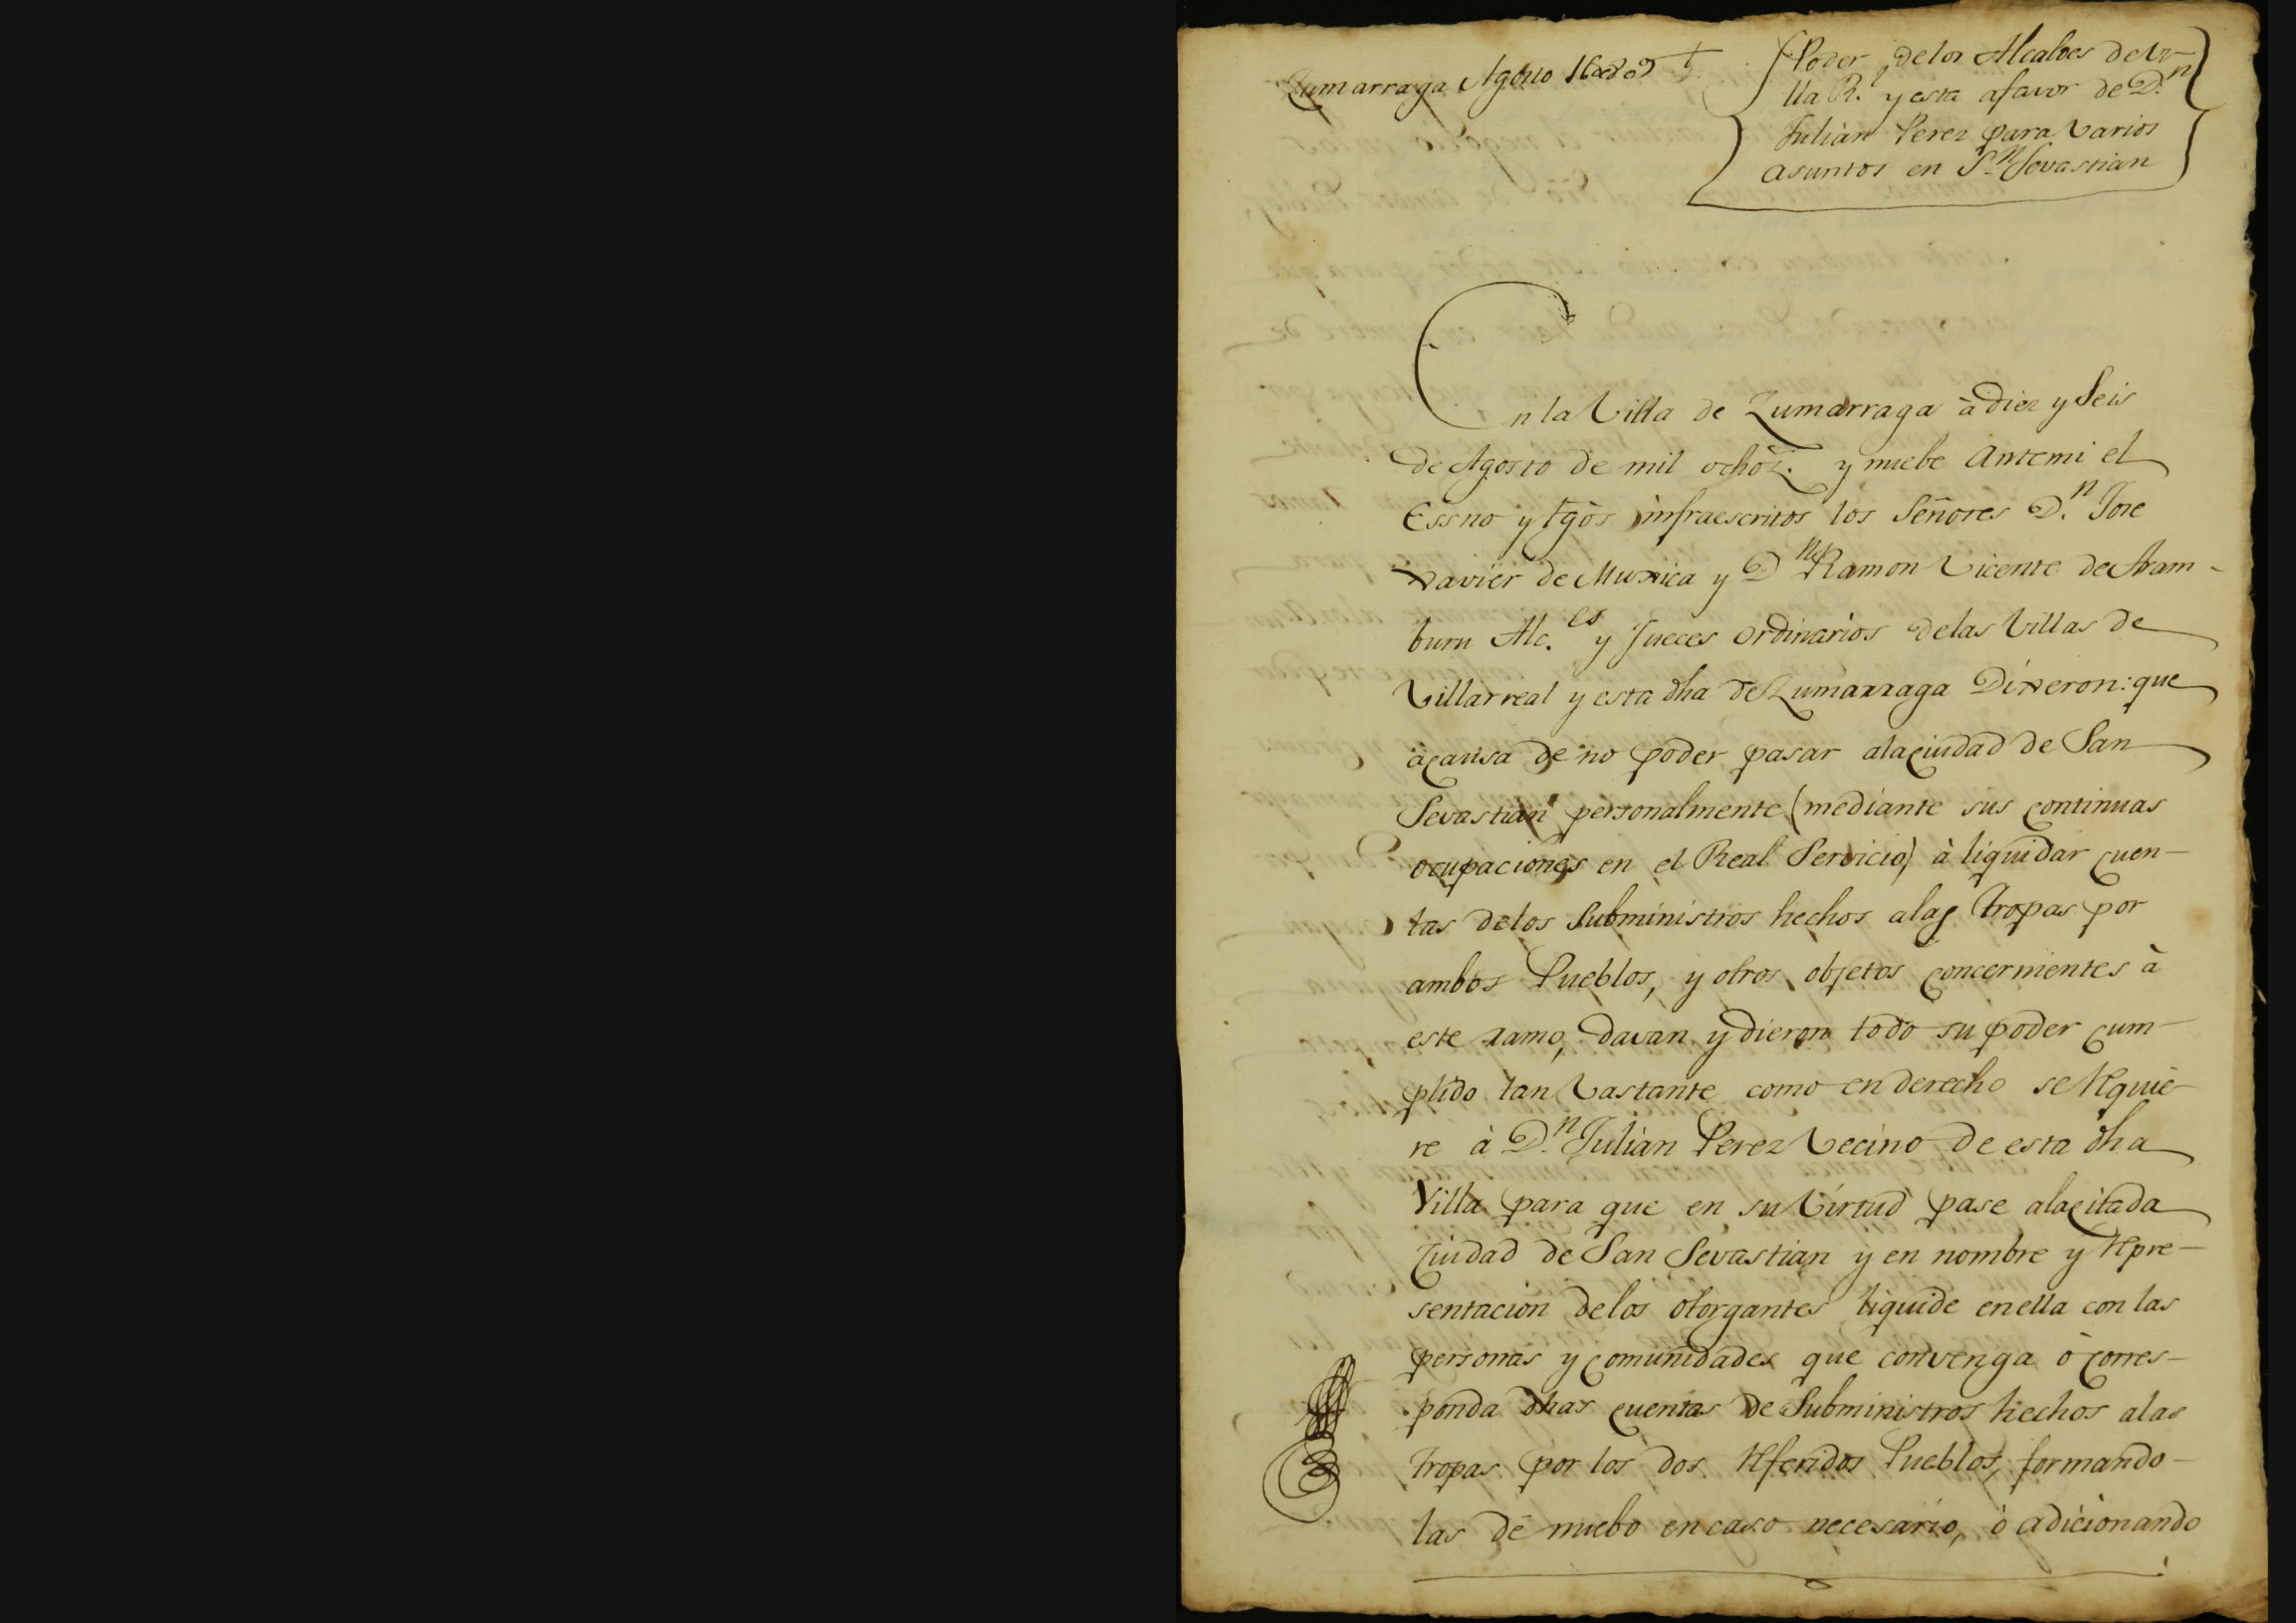 Zumarraga Agosto 16 de 809 †
Poder de los Alcaldes de Vi-
lla R.l y esta a favor de D.n
Julian Perez para varios
asuntos en S.n Sevastian
En la Villa de Zumarraga à diez y Seis
de Agosto de mil ochoz.s y nuebe Antemi el
Essno y tgõs infraescritos los Señores D.n Jose
Xavier de Munica y D.n Ramon Vicente de Aram-
buru Alc.es y Jueces Ordinarios delas Villas de
Villarreal y esta dha de Zumarraga Dixeron: que
à causa de no poder pasar ala ciudad de San
Sevastian personalmente (mediante sus continuas
ocupaciones en el Real Servicio) à liquidar cuen-
tas delos Subministros hechos alas Tropas por
ambos Pueblos, y otros objetos concernientes à
este ramo, davan y dieron todo su poder cum-
plido tan vastante como en derecho se Requie-
re à D.n Julian Perez Vecino de esta dha
Villa para que en su Virtud pase ala citada
Ciudad de San Sevastian y en nombre y Repre-
sentacion delos otorgantes liquide en ella con las
personas y comunidades que convenga ò corres-
ponda dhas cuentas de Subministros hechos alas
tropas por los dos Referidos Pueblos, formando-
las de nuebo en caso necesario, ò adicionando